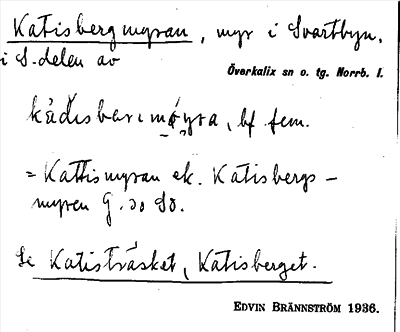 Katisbergmyran, myr i Svartbyn,
i S. delen av
Överkalix sn o. tg. Norrb. l.
kàdısbarımǫ́yra, bf. fem.
= Kattismyran ek. Katisbergs-
myren G. 30 So.
Se Katisträsket, Katisberget.
EDVIN BRÄNNSTRÖM 1936.